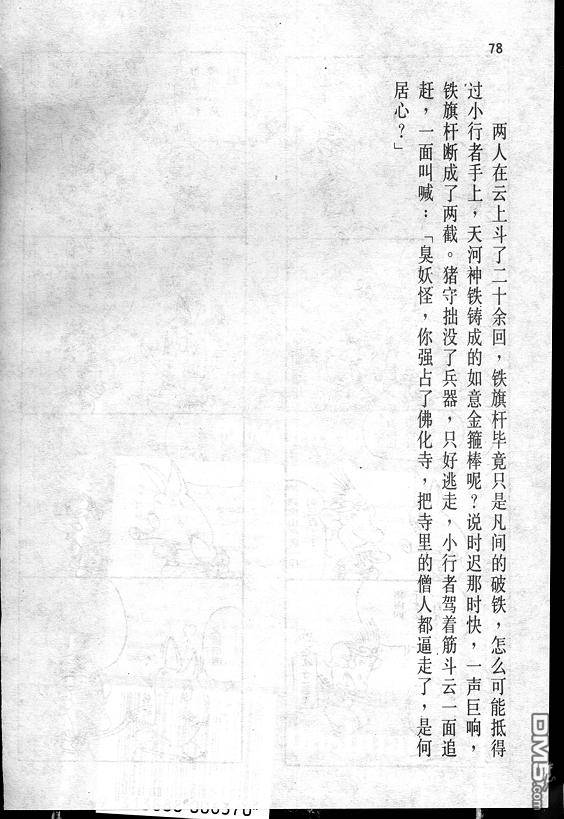 78
两人在云上斗了二十余回，铁旗杆毕竟只是凡间的破铁，怎么可能抵得
过小行者手上，天河神铁铸成的如意金箍棒呢？说时迟那时快，一声巨响，
铁旗杆断成了两截。猪守拙没了兵器，只好逃走，小行者驾着筋斗云一面追
赶，一面叫喊：「臭妖怪，你强占了佛化寺，把寺里的僧人都逼走了，是何
居心？」
DM5.com